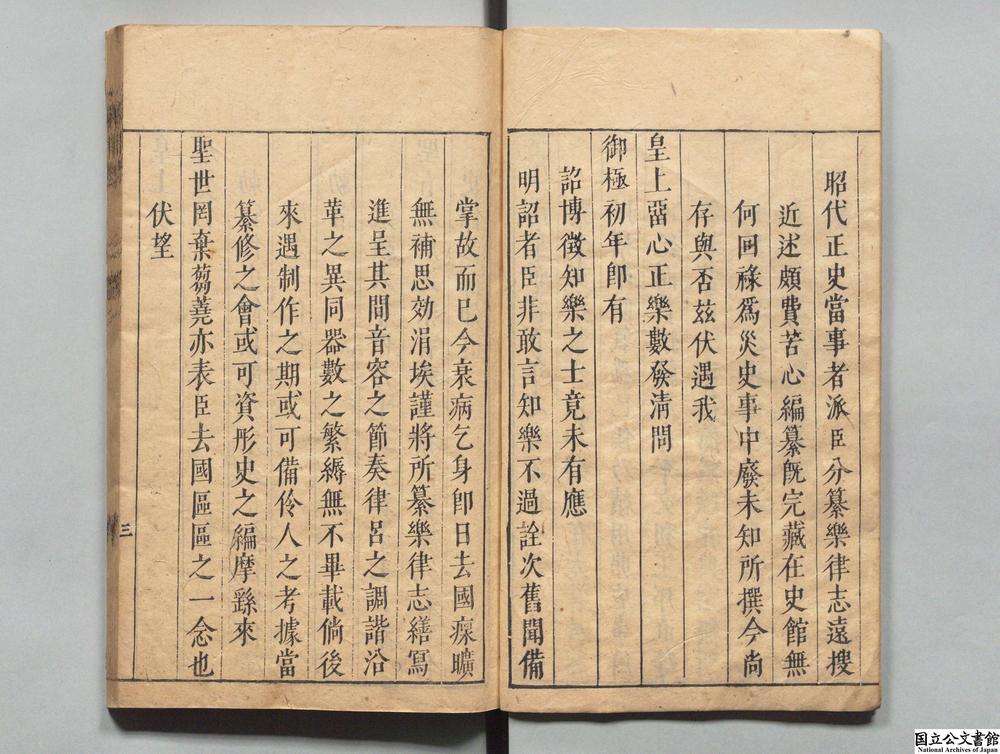 昭代正史當事者派臣分纂樂律志遠搜
近述頗費苦心編纂旣完藏在史館無
何回祿爲災史事中廢未知所撰今尚
存與否玆伏遇我
皇上畱心正樂數發淸問
御極初年卽有
詔博徵知樂之士竟未有應
明詔者臣非敢言知樂不過詮次舊聞備
掌故而已今衰病乞身卽日去國瘝曠
無補思効涓埃謹將所纂樂律志繕寫
進呈其間音容之節奏律呂之調諧沿
革之異同器數之繁縟無不畢載倘後
來遇制作之期或可備伶人之考據當
纂修之會或可資彤史之編摩繇來
聖世罔棄蒭蕘亦表臣去國區區之一念也
伏望
三
国立公文書館
National Archives of Japan